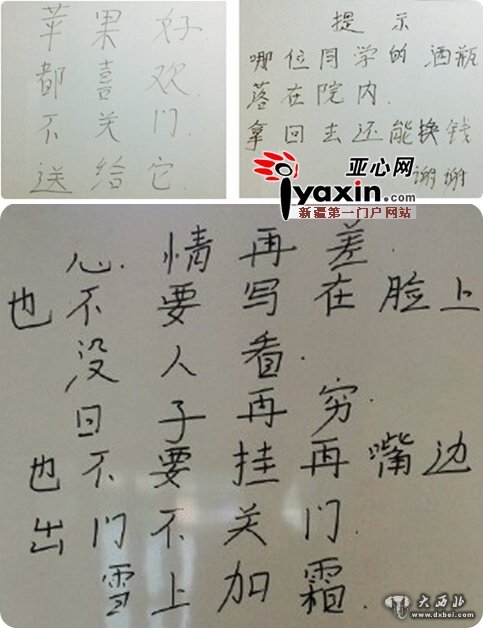 苹果好
都喜欢
不关门
送给它
提示
哪位同学的酒瓶
落在院内.
拿回去还能换钱
谢谢
亚心网
iyaxin.com
新疆第一门户网站
心.情再差.
也不要写在脸上
没人看.
日子再穷.
也不要挂再嘴边
出门不关门.
雪上加霜.
大西北
www.dxbei.com